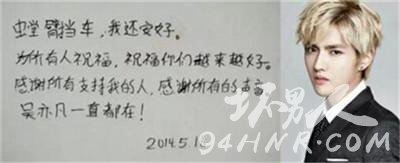 螳臂挡车，我还安好。
为所有人祝福，祝福你们越来越好。
感谢所有支持我的人，感谢所有的声音
吴亦凡一直都在！
2014.5.1
94HNR.COM